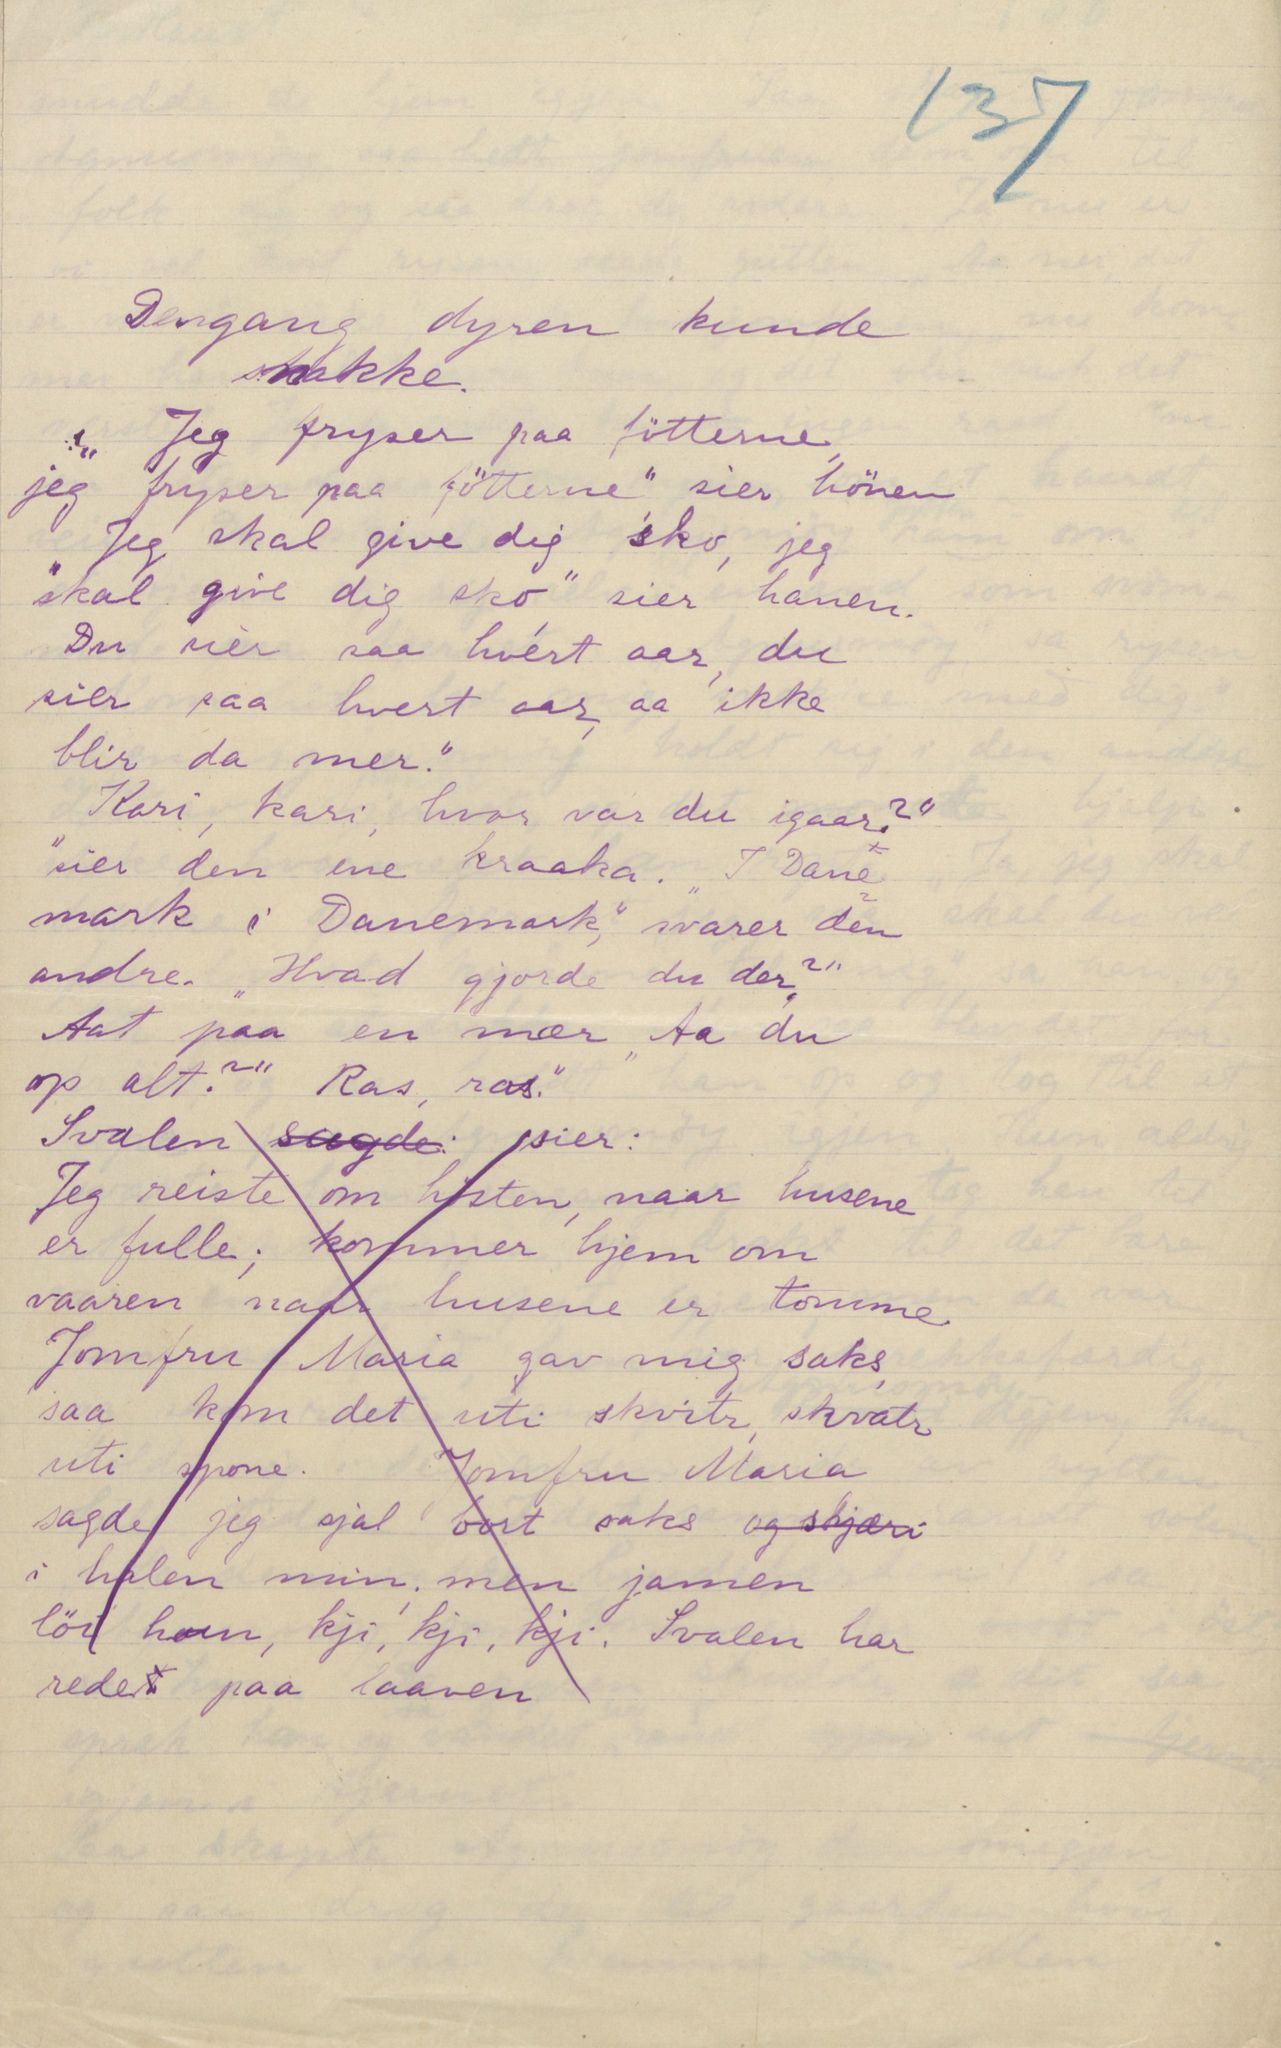 137
Dengang dyren kunde
snakke.
„Jeg fryser paa fötterne,
jeg fryser paa fötterne" sier hönen
Jeg skal give dig sko, jeg
"skal give dig sko" sier hanen.
Du sier saa hvert aar, du
sier saa hvert aar, aa ikke
blir da mer."
Kari, kari, hvor var du igaar?"
"sier den ene kraaka. „I Dane
mark i Danemark," svarer den
andre. „Hvad gjorde du der?"
Aat paa en mær „Aa du
op alt?" Ras, ras."
Svalen sagde: sier:
Jeg reiste om hösten, naar husene
er fulle; kommer hjem om
vaaren naar husene er tomme.
Jomfru Maria gav mig saks,
saa kom det uti skvitr, skvatr
uti spone. Jomfru Maria
sagde jeg sjal bort saks og skjæri
i halen min; men jamen
löi hun, kji, kji, kji. Svalen har
redet paa laaven